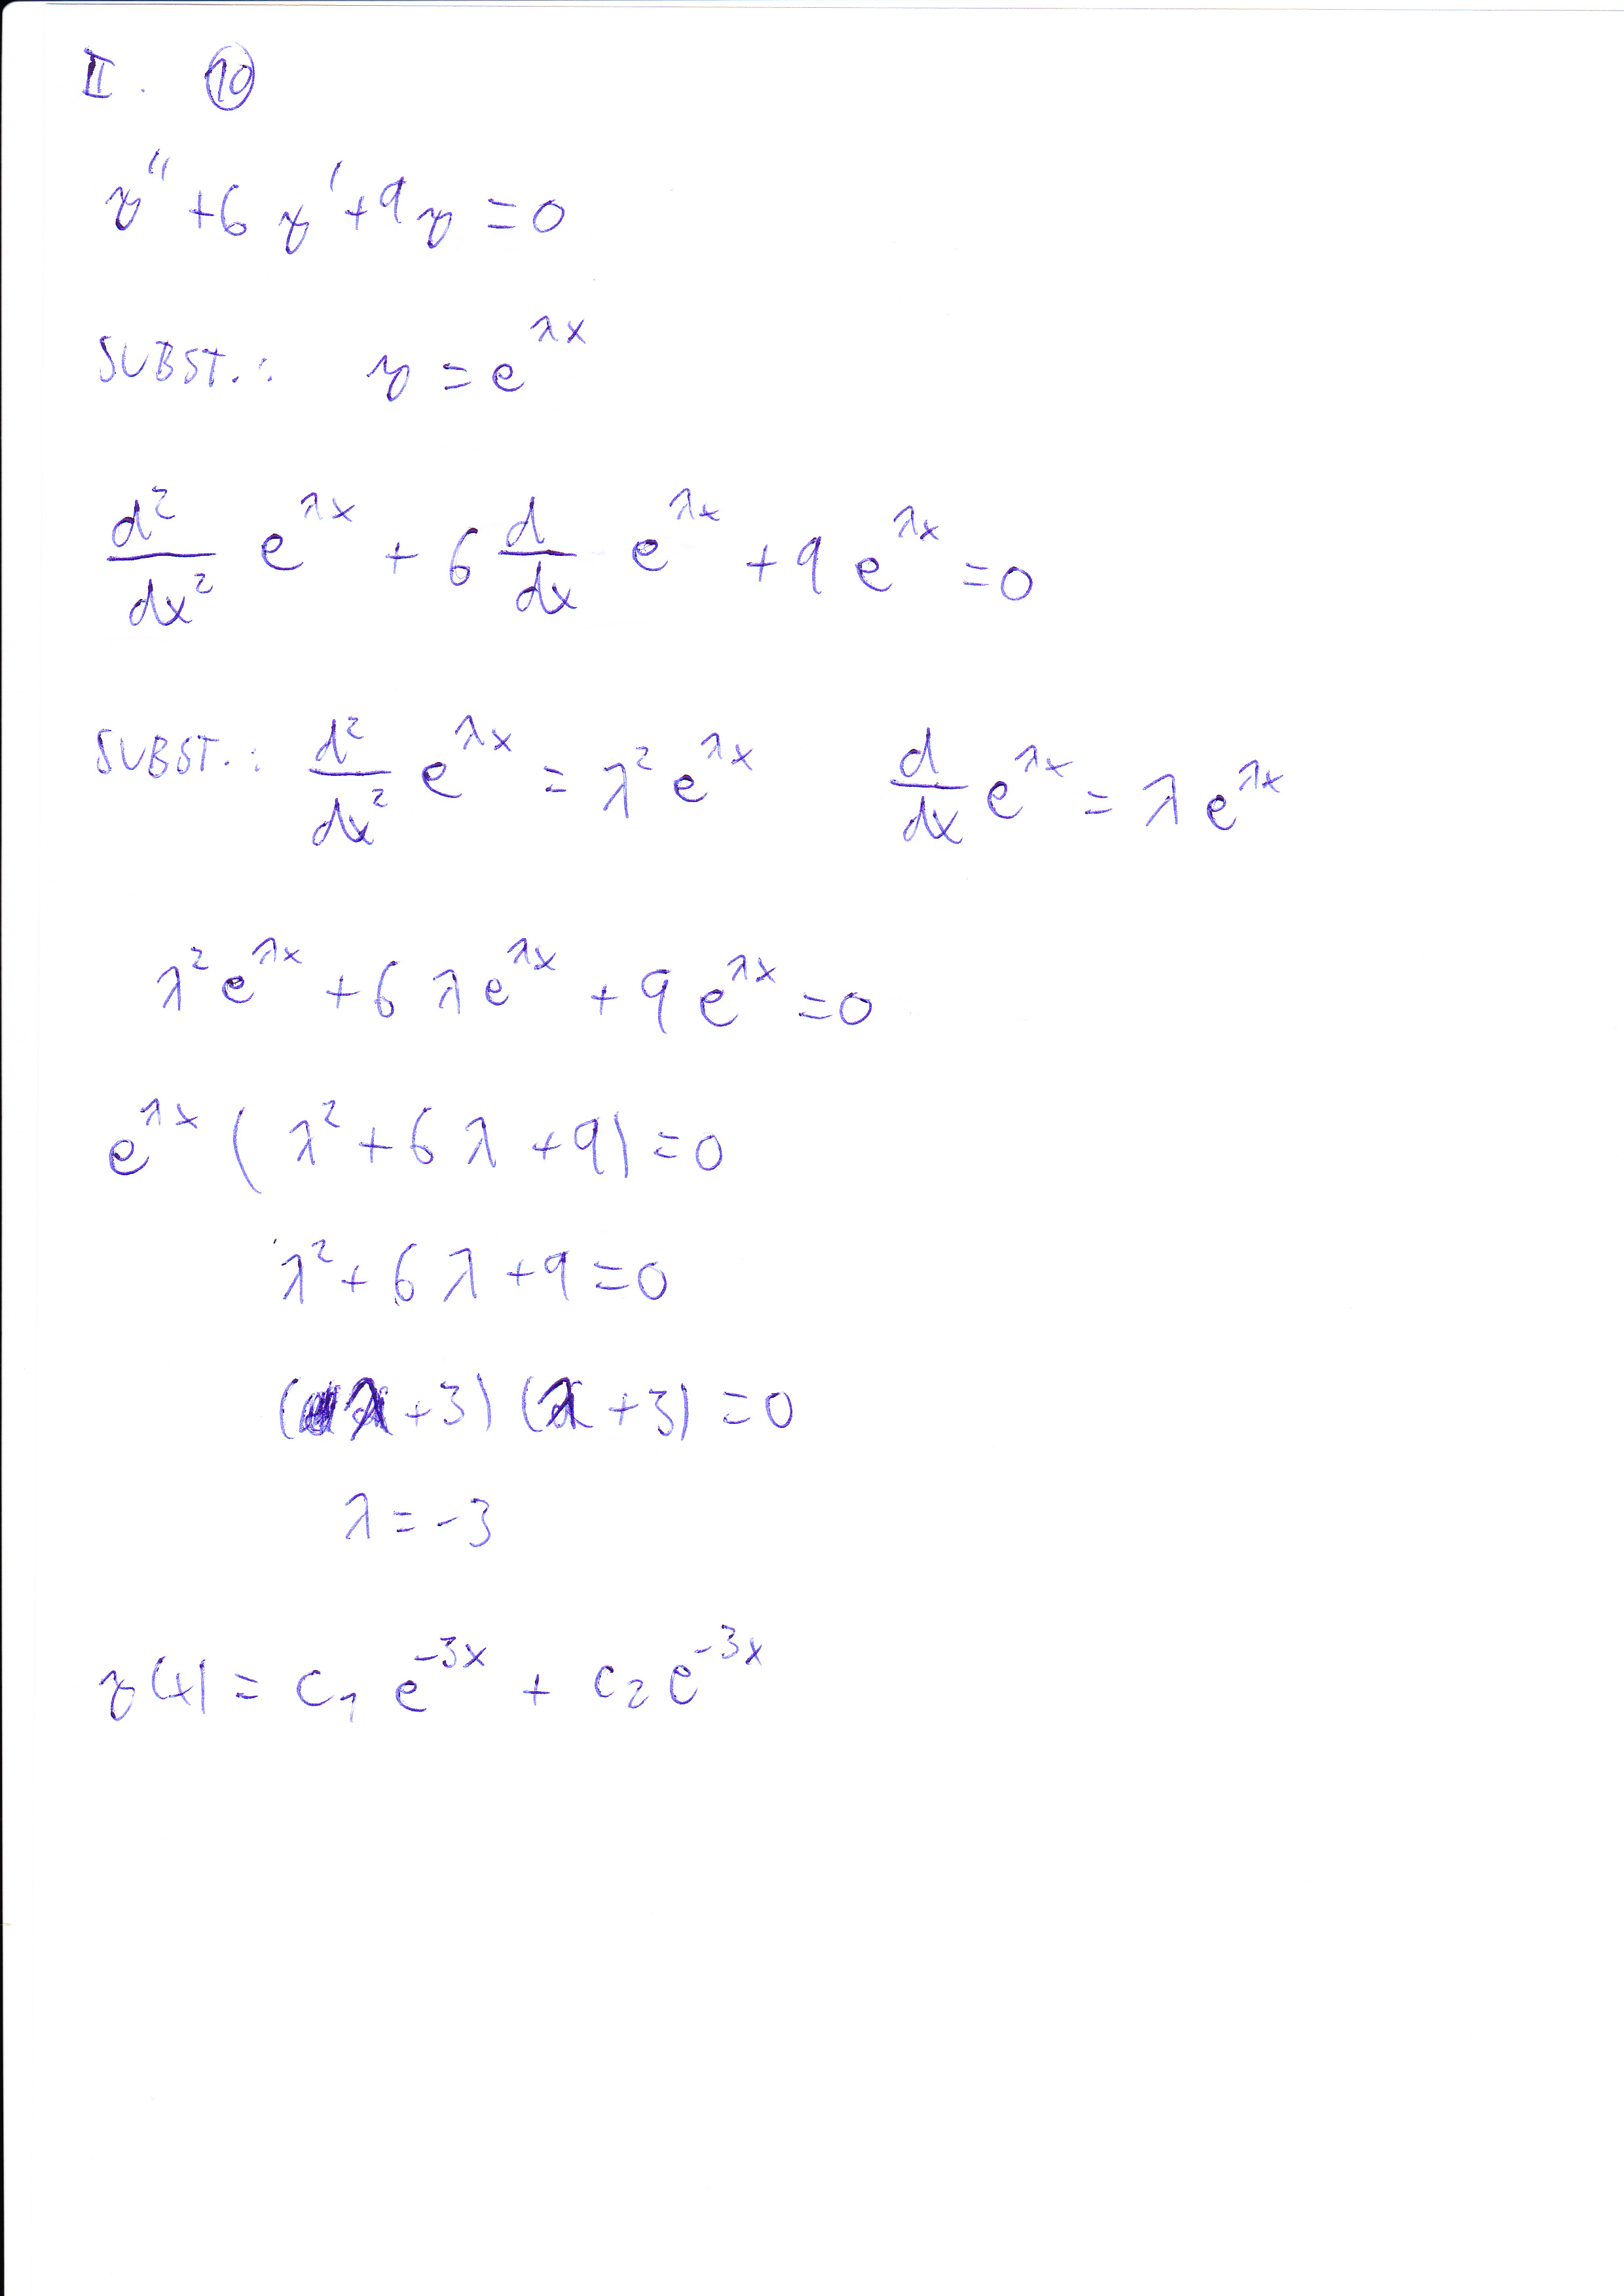 II. ⑩
y'' + 6 y' + 9 y = 0
SUBST.: y = e^{λx}
\frac{d^2}{dx^2} e^{λx} + 6 \frac{d}{dx} e^{λx} + 9 e^{λx} = 0
SUBST.: \frac{d^2}{dx^2} e^{λx} = λ^2 e^{λx} \frac{d}{dx} e^{λx} = λ e^{λx}
λ^2 e^{λx} + 6 λ e^{λx} + 9 e^{λx} = 0
e^{λx} ( λ^2 + 6 λ + 9 ) = 0
λ^2 + 6 λ + 9 = 0
(λ + 3) (λ + 3) = 0
λ = -3
y(x) = c_1 e^{-3x} + c_2 e^{-3x}